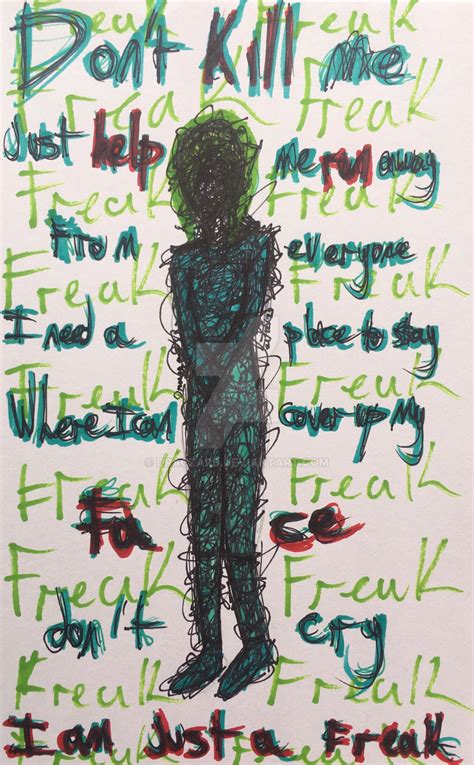 Freak Freak
Don't Kill me
Freak Freak
Just help me run away
Freak Freak
From everyone
Freak Freak
I need a place to stay
Freak Freak
Where I can cover up my
Freak Freak
Face
Freak Freak
don't cry
Freak Freak
I am Just a Freak